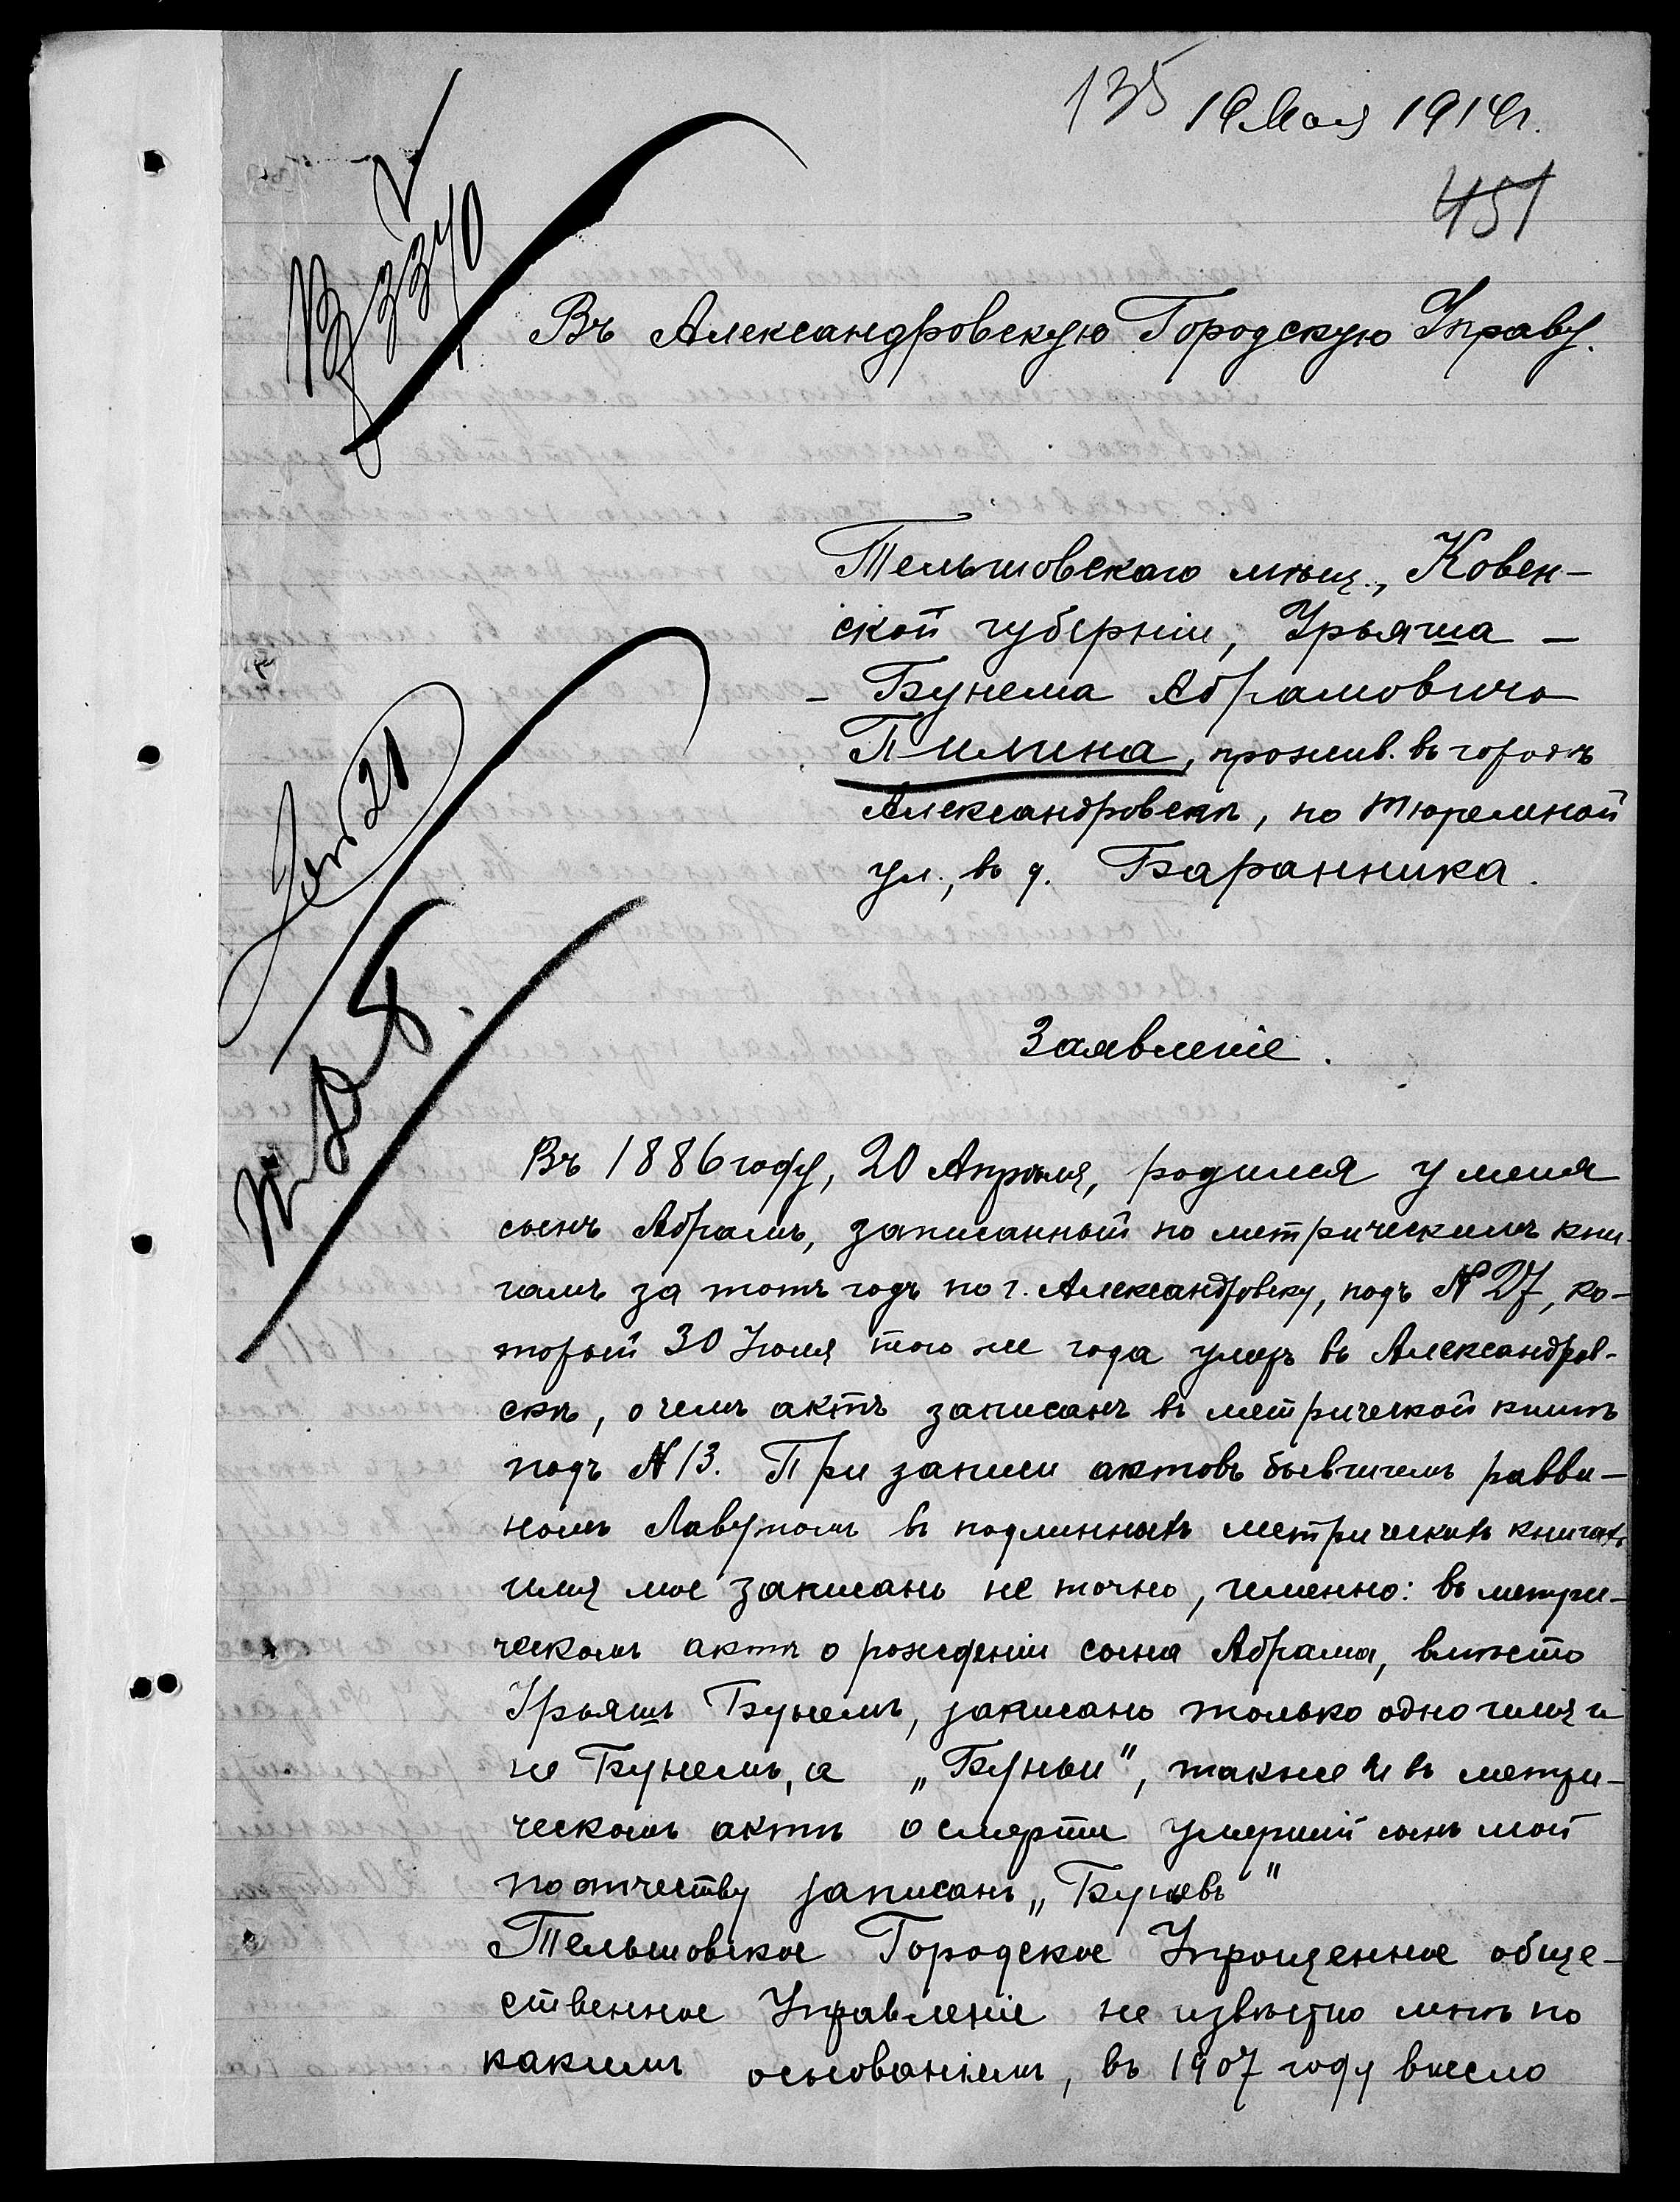 135 19 Мая 1914 г.
451
3340
Въ Александровскую Городскую Управу.
Тельшовскаго мѣщ., Ковен-
ской губерніи, Урьяша -
- Бунема Абрамовича
Пимина, прожив. въ городѣ
Александровскѣ, по Тюремной
ул., въ д. Баранника.
21
Заявленіе.
Въ 1886 году, 20 Апрѣля, родился у меня
сынъ Абрамъ, записанный по метрическимъ кни-
гамъ за тотъ годъ по г. Александровску, подъ № 27, ко-
торый 30 Іюля того же года умеръ въ Александров-
скѣ, о чемъ актъ записанъ въ метрической книгѣ
подъ № 13. При записи актовъ бывшимъ равви-
номъ Лавутомъ въ подлинныхъ метрическихъ книгахъ
имя мое записано не точно, именно: въ метри-
ческомъ актѣ о рожденіи сына Абрама, вмѣсто
Урьяшъ Бунемъ, записано только одно имя и
не Бунемъ, а „Буньи", также и въ метри-
ческомъ актѣ о смерти умершій сынъ мой
по отчеству записанъ „Буневъ"
Тельшовское Городское Упрощенное обще-
ственное Управленіе не извѣстно мнѣ по
какимъ основаніямъ, въ 1907 году внесло